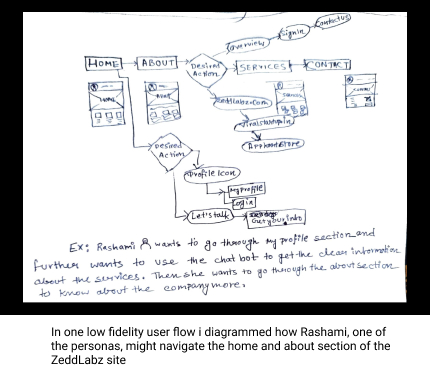 Contact us
Signin
Overview
HOME
ABOUT
Desired
Action
SERVICES
CONTACT
Zeddlabz.Com
Viralstartup.In
AppboatStore
Desired
Action
Profile Icon
My Profile
Login
Let's talk
Out your Info
Ex: Rashami wants to go through My profile section and
further wants to use the chat bot to get the clear information
about the services. Then she wants to go through the about section
to know about the company more.
In one low fidelity user flow i diagrammed how Rashami, one of
the personas, might navigate the home and about section of the
ZeddLabz site